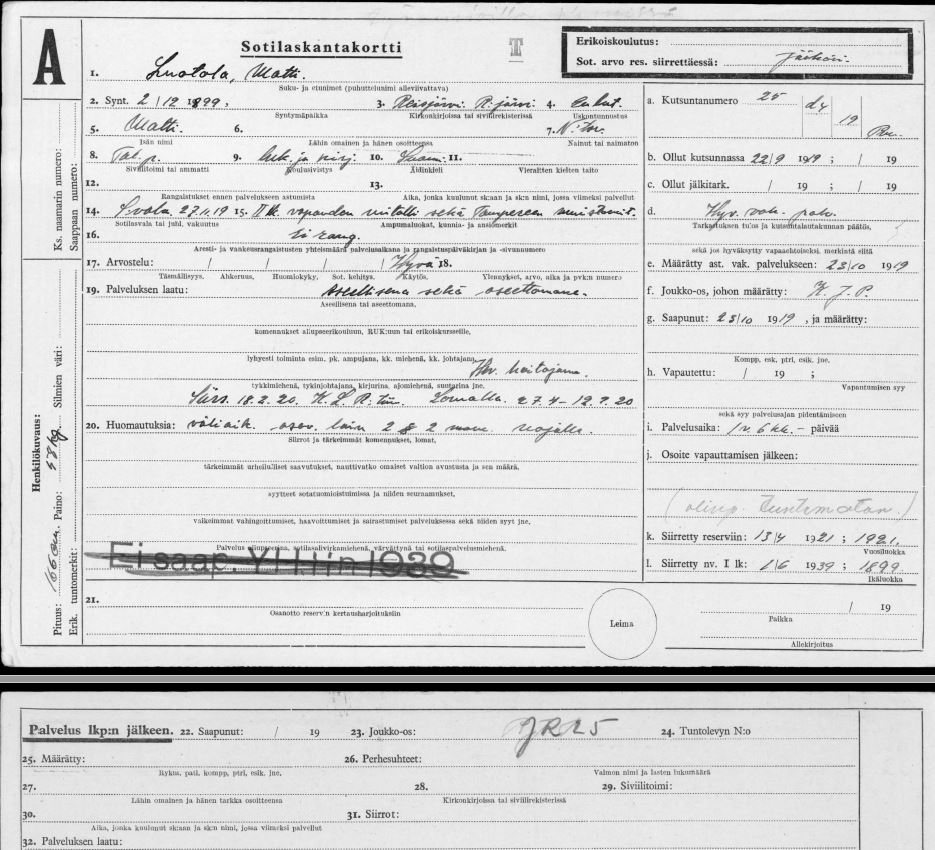 A
Sotilaskantakortti
T
Erikoiskoulutus:
Sot. arvo res. siirrettäessä: jääkäri.
1. Luotola, Matti.
Suku- ja etunimet (puhuttelunimi alleviivattava)
2. Synt. 2/12 1899, 3. Reisjärvi. R.järvi. 4. ev. lut.
Syntymäpaikka Kirkonkirjoissa tai siviilirekisterissä Uskontunnustus
5. Matti. 6. 7. N:ton.
Isän nimi Lähin omainen ja hänen osoitteensa Nainut tai naimaton
8. Tal. p. 9. luk. ja kirj. 10. Suomi. 11.
Siviilitoimi tai ammatti Koulusivistys Äidinkieli Vieraitten kielten taito
12. 13.
Rangaistukset ennen palvelukseen astumista Aika, jonka kuulunut sk:aan ja sk:n nimi, jossa viimeksi palvellut
14. S.vala. 27.11.19 15. II lk. vapauden mitalli sekä Tampereen muistomit.
Sotilasvala tai juhl. vakuutus Ampumaluokat, kunnia- ja ansiomerkit
16. Ei rang.
Aresti- ja vankeusrangaistusten yhteismäärä palvelusaikana ja rangaistuspäiväkirjan ja -sivunnumero
17. Arvostelu: / / / / Hyvä 18.
Täsmällisyys. Ahkeruus, Huomiokyky, Sot. kehitys. Käytös. Ylennykset, arvo, aika ja pvk:n numero
19. Palveluksen laatu: Aseellisena sekä aseettomana.
Aseellisena tai aseettomana.
komennukset aliupseerikouluun, RUK:uun tai erikoiskursseille,
lyhyesti toiminta esim. pk. ampujana, kk. miehenä, kk. johtajana,
Hev. hoitajana.
tykkimiehenä, tykinjohtajana, kirjurina, ajomiehenä, suutarina jne.
Siirr. 18.2.20. K.L.R:tiin. Lomalla. 27.4–12.7.20
20. Huomautuksia: väliaik. asev. lain 2 § 2 mom. nojalla.
Siirrot ja tärkeimmät komennukset, lomat,
tärkeimmät urheilulliset saavutukset, nauttivatko omaiset valtion avustusta ja sen määrä,
syytteet sotatuomioistuimissa ja niiden seuraamukset,
vaikeimmat vahingoittumiset, haavoittumiset ja sairastumiset palveluksessa sekä niiden syyt jne,
Palvelus aliupseerina, sotilasvirkamiehenä, värvättynä tai sotilaspalvelusmiehenä.
Ei saap. YH:iin 1939
21.
Osanotto reserv:n kertausharjoituksiin
Leima
a. Kutsuntanumero 25 19
b. Ollut kutsunnassa 22/9 1919 ; / 19
c. Ollut jälkitark. / 19 ; / 19
d. Hyv. vak. palv.
Tarkastuksen tulos ja kutsuntalautakunnan päätös,
sekä jos hyväksytty vapaaehtoiseksi merkintä siitä
e. Määrätty ast. vak. palvelukseen: 23/10 1919
f. Joukko-os, johon määrätty: K. J. P.
g. Saapunut: 23/10 1919 , ja määrätty:
Kompp, esk, ptri, esik, jne.
h. Vapautettu: / 19 ;
Vapautumisen syy
sekä syy palvelusajan pidentämiseen
i. Palvelusaika: 1 v. 6 kk. – päivää
j. Osoite vapauttamisen jälkeen:
(olinp. tuntematon.)
k. Siirretty reserviin: 13/4 1921 ; 1921.
Vuosiluokka
l. Siirretty nv. I lk: 1/6 1939 ; 1899
Ikäluokka
/ 19
Paikka
Allekirjoitus
Ks. naamarin numero:
Saappaan numero:
Henkilökuvaus:
Pituus: 166 cm. Paino: 58 kg. Silmien väri:
Erik. tuntomerkit:
Palvelus lkp:n jälkeen. 22. Saapunut: / 19 23. Joukko-os: JR25 24. Tuntolevyn N:o
25. Määrätty: 26. Perhesuhteet:
Rykm, patl. kompp, ptri, esik, jne. Vaimon nimi ja lasten lukumäärä
27. 28. 29. Siviilitoimi:
Lähin omainen ja hänen tarkka osoitteensa Kirkonkirjoissa tai siviilirekisterissä
30. 31. Siirrot:
Aika, jonka kuulunut sk:aan ja sk:n nimi, jossa viimeksi palvellut
32. Palveluksen laatu: